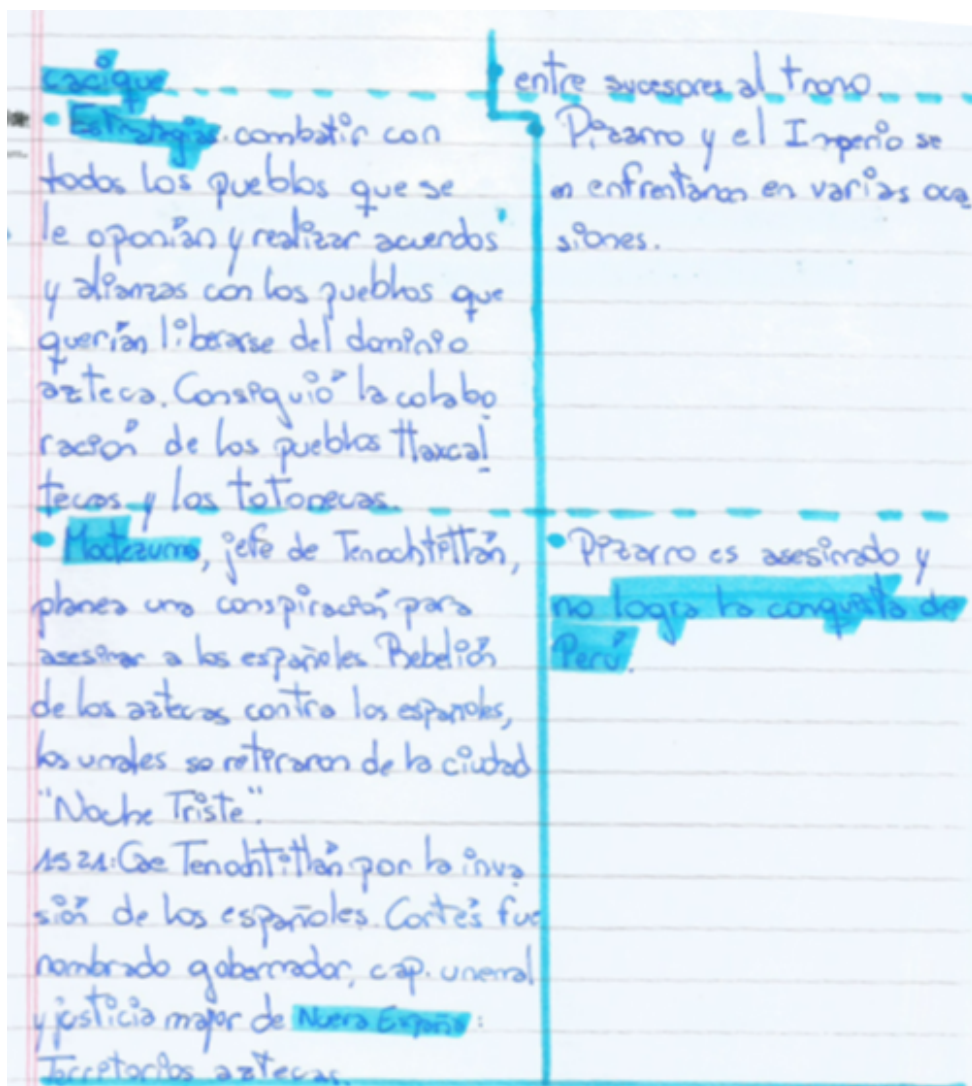 cacique
• Estrategias: combatir con
todos los pueblos que se
le oponían y realizar acuerdos
y alianzas con los pueblos que
querían liberarse del dominio
azteca. Consiguió la colabo
ración de los pueblos tlaxcal
tecas y los totonecas.
• Moctezuma, jefe de Tenochtitlán,
planea una conspiración para
asesinar a los españoles. Rebelión
de los aztecas contra los españoles,
los cuales se retiraron de la ciudad
"Noche Triste".
1521: Cae Tenochtitlán por la inva
sión de los españoles. Cortés fue
nombrado gobernador, cap. general
y justicia mayor de Nueva España:
Territorios aztecas.
• entre sucesores al trono
• Pizarro y el Imperio se
en enfrentaron en varias oca
siones.
• Pizarro es asesinado y
no logra la conquista de
Perú.